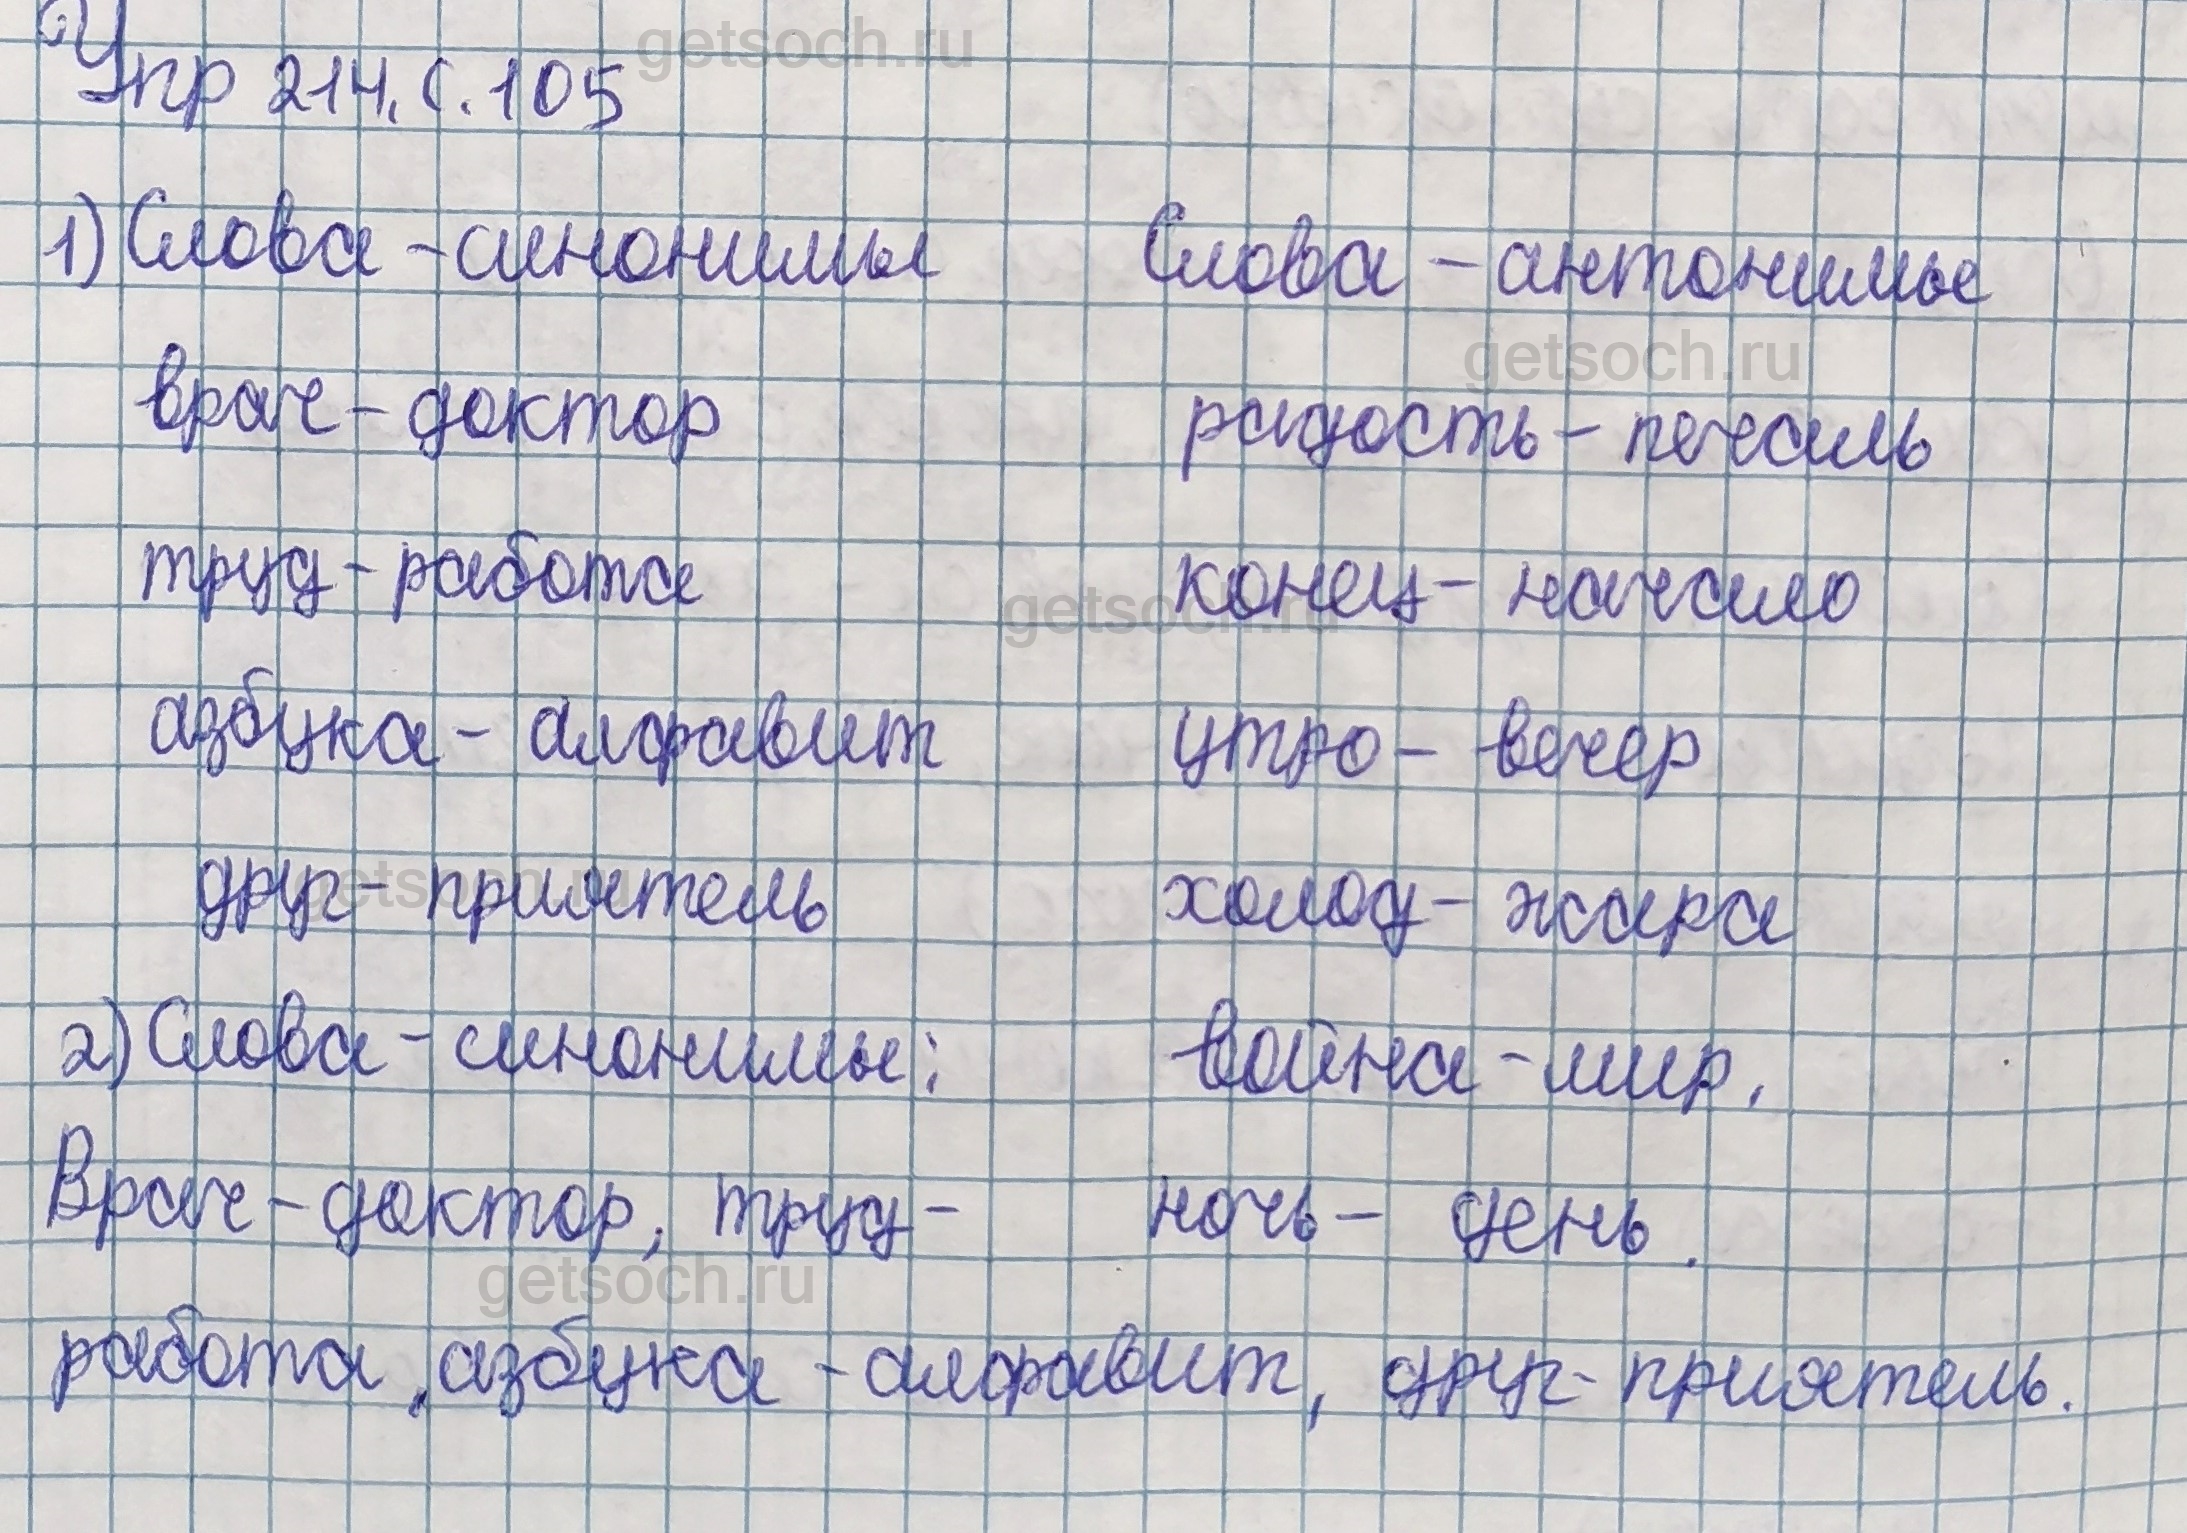 getsoch.ru
Упр 214. с. 105
1) Слова - синонимы Слова - антонимы
getsoch.ru
врач - доктор радость - печаль
труд - работа конец - начало
getsoch.ru
азбука - алфавит утро - вечер
getsoch.ru
друг - приятель холод - жара
2) Слова - синонимы: война - мир,
Врач - доктор, труд - ночь - день.
getsoch.ru
работа, азбука - алфавит, друг - приятель.